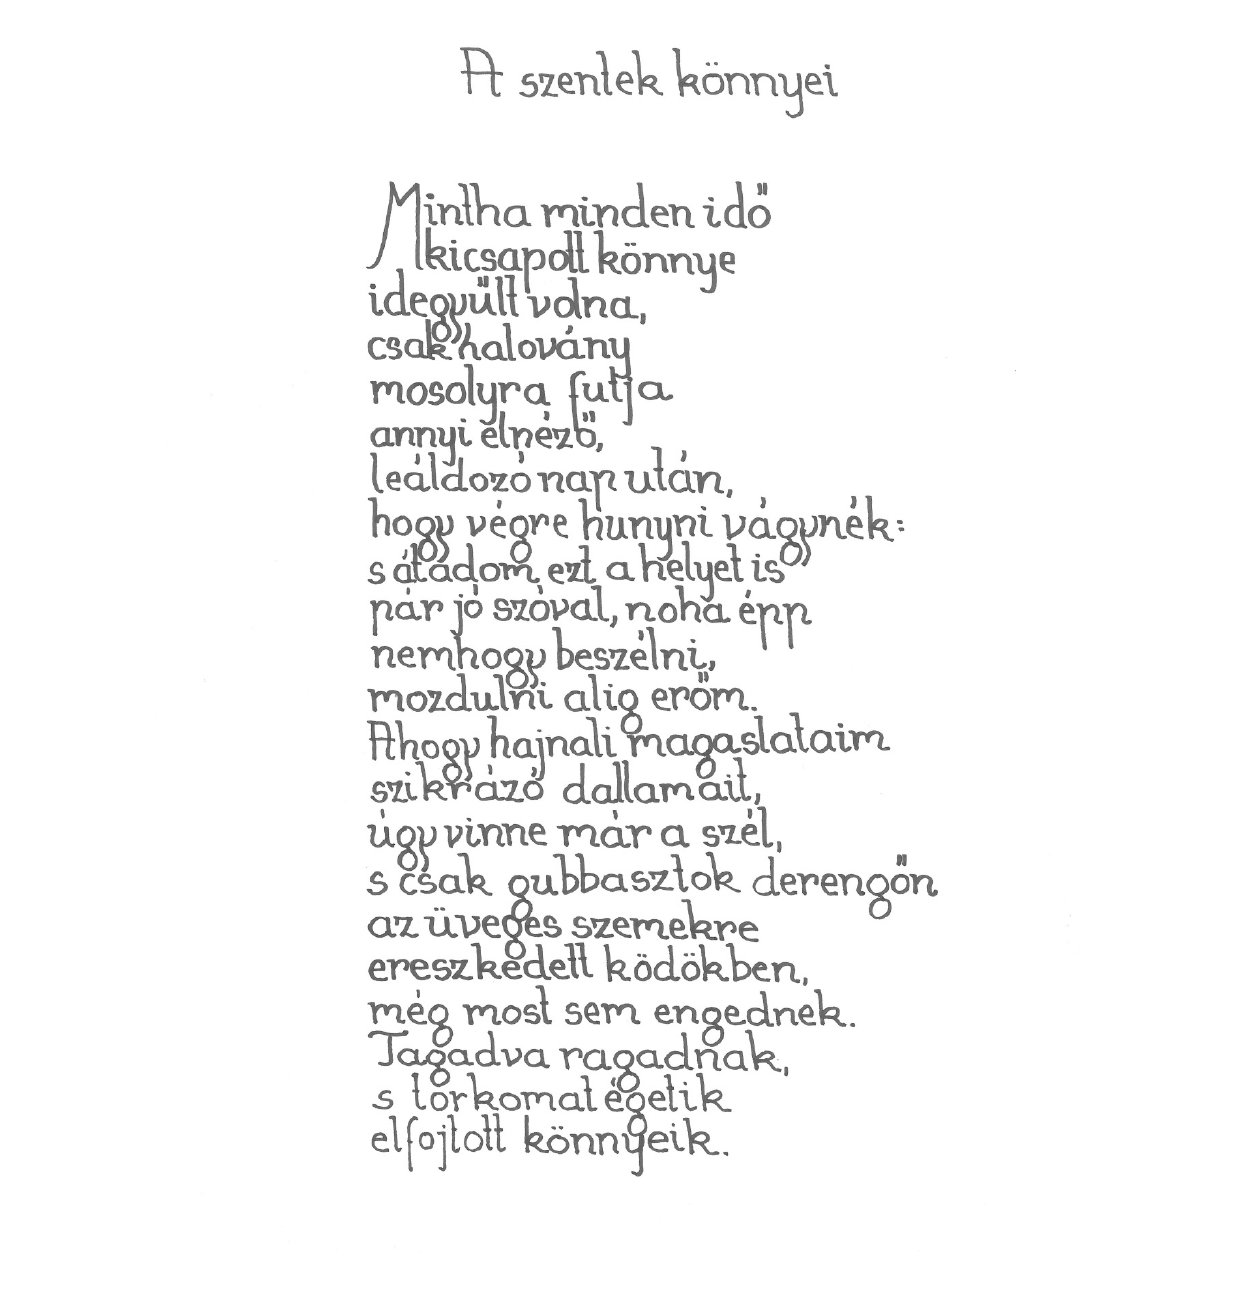 A szentek könnyei
Mintha minden idő
kicsapott könnye
idegyűlt volna,
csak halovány
mosolyra futja
annyi elnéző,
leáldozó nap után,
hogy végre hunyni vágynék:
s átadom ezt a helyet is
pár jó szóval, noha épp
nemhogy beszélni,
mozdulni alig erőm.
Ahogy hajnali magaslataim
szikrázó dallamait,
úgy vinne már a szél,
s csak gubbasztok derengőn
az üveges szemekre
ereszkedett ködökben,
még most sem engednek.
Tagadva ragadnak,
s torkomat égetik
elfojtott könnyeik.